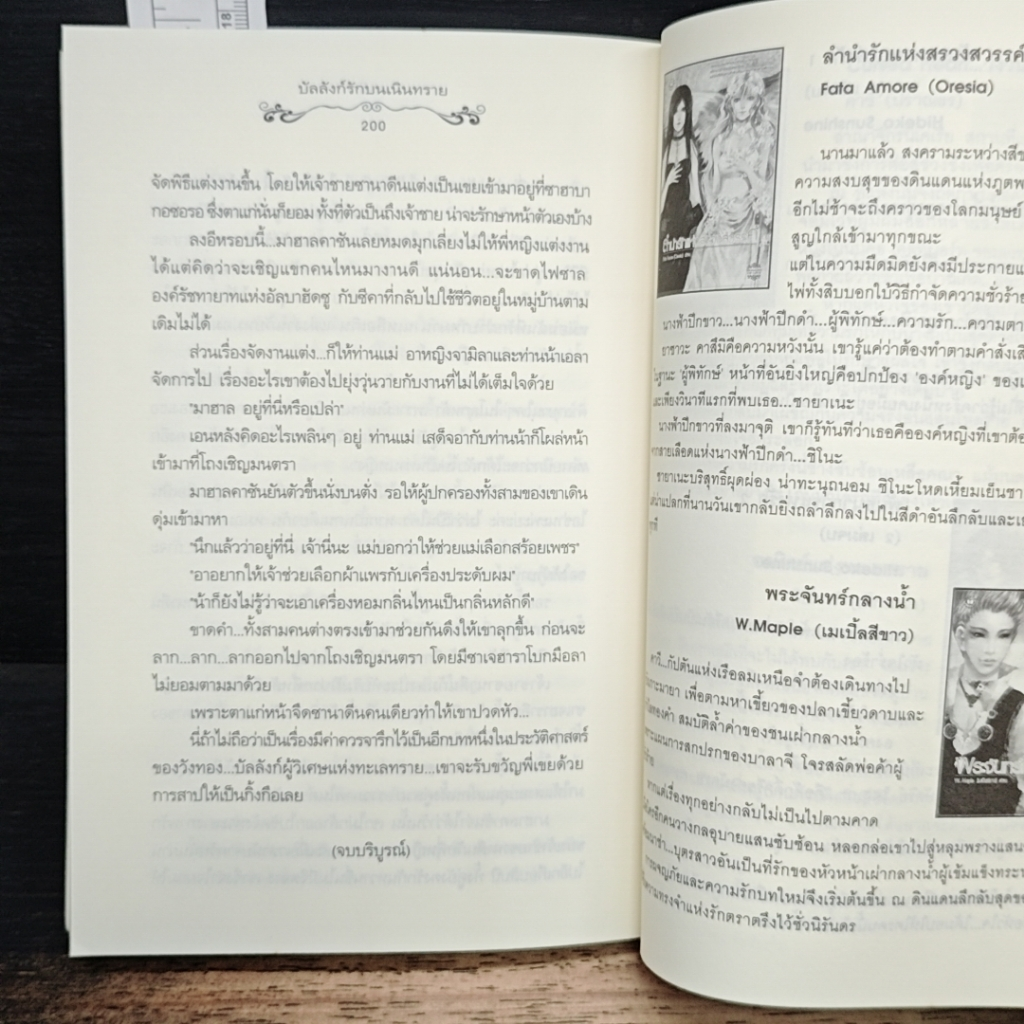 18
บัลลังก์รักบนเนินทราย
200
จัดพิธีแต่งงานขึ้น โดยให้เจ้าชายซานาดีนแต่งเป็นเขยเข้ามาอยู่ที่ซาฮาบา
กอซอรอ ซึ่งตาแก่นั่นก็ยอม ทั้งที่ตัวเป็นถึงเจ้าชาย น่าจะรักษาหน้าตัวเองบ้าง
ลงอีหรอบนี้...มาฮาลคาซันเลยหมดมุกเลี่ยงไม่ให้พี่หญิงแต่งงาน
ได้แต่คิดว่าจะเชิญแขกคนไหนมางานดี แน่นอน...จะขาดไฟซาล
องค์รัชทายาทแห่งอัลบาฮัดซู กับซีคาที่กลับไปใช้ชีวิตอยู่ในหมู่บ้านตาม
เดิมไม่ได้
ส่วนเรื่องจัดงานแต่ง...ก็ให้ท่านแม่ อาหญิงจามิลาและท่านน้าเอลา
จัดการไป เรื่องอะไรเขาต้องไปยุ่งวุ่นวายกับงานที่ไม่ได้เต็มใจด้วย
"มาฮาล อยู่ที่นี่หรือเปล่า"
เอนหลังคิดอะไรเพลินๆ อยู่ ท่านแม่ เสด็จอากับท่านน้าก็โผล่หน้า
เข้ามาที่โถงเชิญมนตรา
มาฮาลคาซันยันตัวขึ้นนั่งบนตั่ง รอให้ผู้ปกครองทั้งสามของเขาเดิน
ดุ่มเข้ามาหา
"นึกแล้วว่าอยู่ที่นี่ เจ้านี่นะ แม่บอกว่าให้ช่วยแม่เลือกสร้อยเพชร"
"อาอยากให้เจ้าช่วยเลือกผ้าแพรกับเครื่องประดับผม"
"น้าก็ยังไม่รู้ว่าจะเอาเครื่องหอมกลิ่นไหนเป็นกลิ่นหลักดี"
ขาดคำ...ทั้งสามคนต่างตรงเข้ามาช่วยกันดึงให้เขาลุกขึ้น ก่อนจะ
ลาก...ลาก...ลากออกไปจากโถงเชิญมนตรา โดยมีซาเจฮาราโบกมือลา
ไม่ยอมตามมาด้วย
เพราะตาแก่หน้าจืดซานาดีนคนเดียวทำให้เขาปวดหัว...
นี่ถ้าไม่ถือว่าเป็นเรื่องมีค่าควรจารึกไว้เป็นอีกบทหนึ่งในประวัติศาสตร์
ของวังทอง...บัลลังก์ผู้วิเศษแห่งทะเลทราย...เขาจะรับขวัญพี่เขยด้วย
การสาปให้เป็นกิ้งกือเลย
(จบบริบูรณ์)
ลำนำรักแห่งสรวงสวรรค์
Fata Amore (Oresia)
นานมาแล้ว สงครามระหว่าง
ความสงบสุขของดินแดนแห่ง
อีกไม่ช้าจะถึงคราวของโลกมนุษย์
สูญใกล้เข้ามาทุกขณะ
แต่ในความมืดมิดยังคงมีประกาย
ไพ่ทั้งสิบบอกใบ้วิธีกำจัดความชั่วร้าย
นางฟ้าปีกขาว...นางฟ้าปีกดำ...ผู้พิทักษ์...ความรัก...
ยาซาวะ คาสึมิคือความหวังนั้น เขารู้แค่ว่าต้องทำตาม
'ผู้พิทักษ์' หน้าที่อันยิ่งใหญ่คือปกป้อง 'องค์หญิง'
เพียงวินาทีแรกที่พบเธอ...ซายาเนะ
นางฟ้าปีกขาวที่ลงมาจุติ เขาก็รู้ทันทีว่าเธอคือองค์หญิงที่เขา
สายเลือดแห่งนางฟ้าปีกดำ...ชิโนะ
ซายาเนะบริสุทธิ์ผุดผ่อง น่าทะนุถนอม ชิโนะโหดเหี้ยมเย็นชา
แปลกที่นานวันเขากลับยิ่งถลำลึกลงไปในสีดำอันลึกลับ
พระจันทร์กลางน้ำ
W.Maple (เมเปิ้ลสีขาว)
กัปตันแห่งเรือลมเหนือจำต้องเดินทางไป
เพื่อตามหาเขี้ยวของปลาเขี้ยวดาบและ
สมบัติล้ำค่าของชนเผ่ากลางน้ำ
แผนการสกปรกของบาลาจี โจรสลัดพ่อค้าผู้
เรื่องทุกอย่างกลับไม่เป็นไปตามคาด
วางกลอุบายแสนซับซ้อน หลอกล่อเขาไปสู่หลุมพราง
บุตรสาวอันเป็นที่รักของหัวหน้าเผ่ากลางน้ำผู้เข้มแข็ง
และความรักบทใหม่จึงเริ่มต้นขึ้น ณ ดินแดนลึกลับสุด
แห่งรักตราตรึงไว้ชั่วนิรันดร